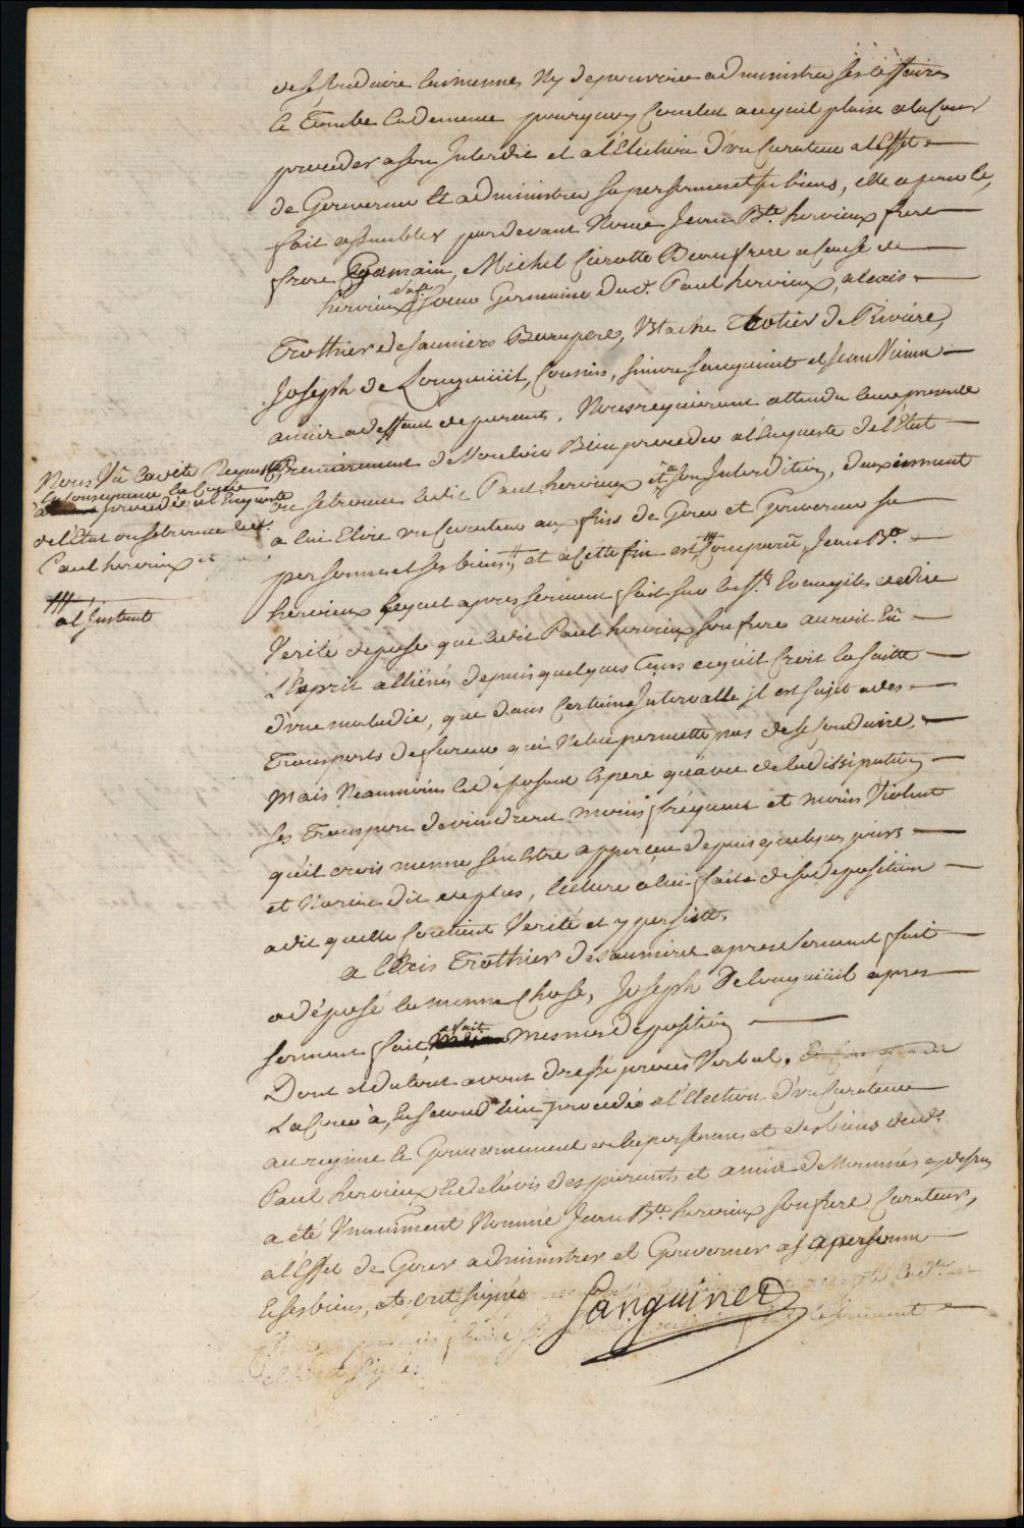 de se Conduire luimenme, Ny de pouvoir administrer ses affaires
le Comble la demence pourquoy Conclut acequil plaise a la Cour
proceder a son Interdit et a l'Election d'vn Curateur al'Effet
de Gouverner Et administrer sa personne et ses biens, elle a pour ce,
fait assembler pardevant Nous Jean Bte. hervieux frere
frere Germain, Michel Curotte Beaufrere a Cause de
hervieux sa fe. Soeur Germaine dud. Paul hervieux, alexis
Trottier desauniers Beaupere, Vstache trotier De Riviere,
Joseph de Longueüiil, Cousins, Simon Sanguinet et Jean
amis a deffaut de parents. Nous requierrent attendu leur presence
Premierement de Vouloir Bien proceder al'Enqueste de l'Etat
ou se trouve ledit Paul hervieux et a son Interdition, deuxiemment
a lui Elire vn Curateur aux fins de Gerer et Gouverner sa
personne et ses biens, et a Cette fin est Comparu, Jean Bte.
hervieux lequel apres serment fait sur les Sts. Evangiles de dire
Verité depose que ledit Paul hervieux son frere auroit Eu
L'Esprit alliéné depuis quelques Tems cequ'il Croit la suitte
d'vne maladie, que dans Certains Intervalle il est sujet a des
Transports de fureur qui Ne lui permette pas de se Conduire,
Mais Neanmoins le deposant Espere qu'avec de la dissipation
ses Transports deviendront moins fréquent et moins Violent
qu'il crois menme s'en Estre apperçeu depuis quelques jours
et N'a rien dit de plus, lecture a lui faite de sa deposition
a dit qu'elle Contient Verité et y persiste.
alexis Trottier Desauniers apres Serment fait
a déposé la menme Chose, Joseph De longueüiil apres
serment fait a fait mesmes deposition
Dont et du tout avons dressé procès Verbal.
La Cour à, En second lieu procedée a l'Election d'vn Curateur
au regime le Gouvernement de la personne et des biens dudt.
Paul hervieux Et de l'avis des parents et amis denommés cy dessus
a été Vnanimment Nommé Jean Bte. hervieux son frere Curateur,
al'Effet de Gerer administrer et Gouverner a sa personne
Et ses biens, et ont signés
Sanguinet
et ont signés.
Nous Vû la dite Requeste
En Consequence la Cour
a procedé a l'Enqueste
de l'Etat ou se trouve led.
Paul hervieux et
al'Instant